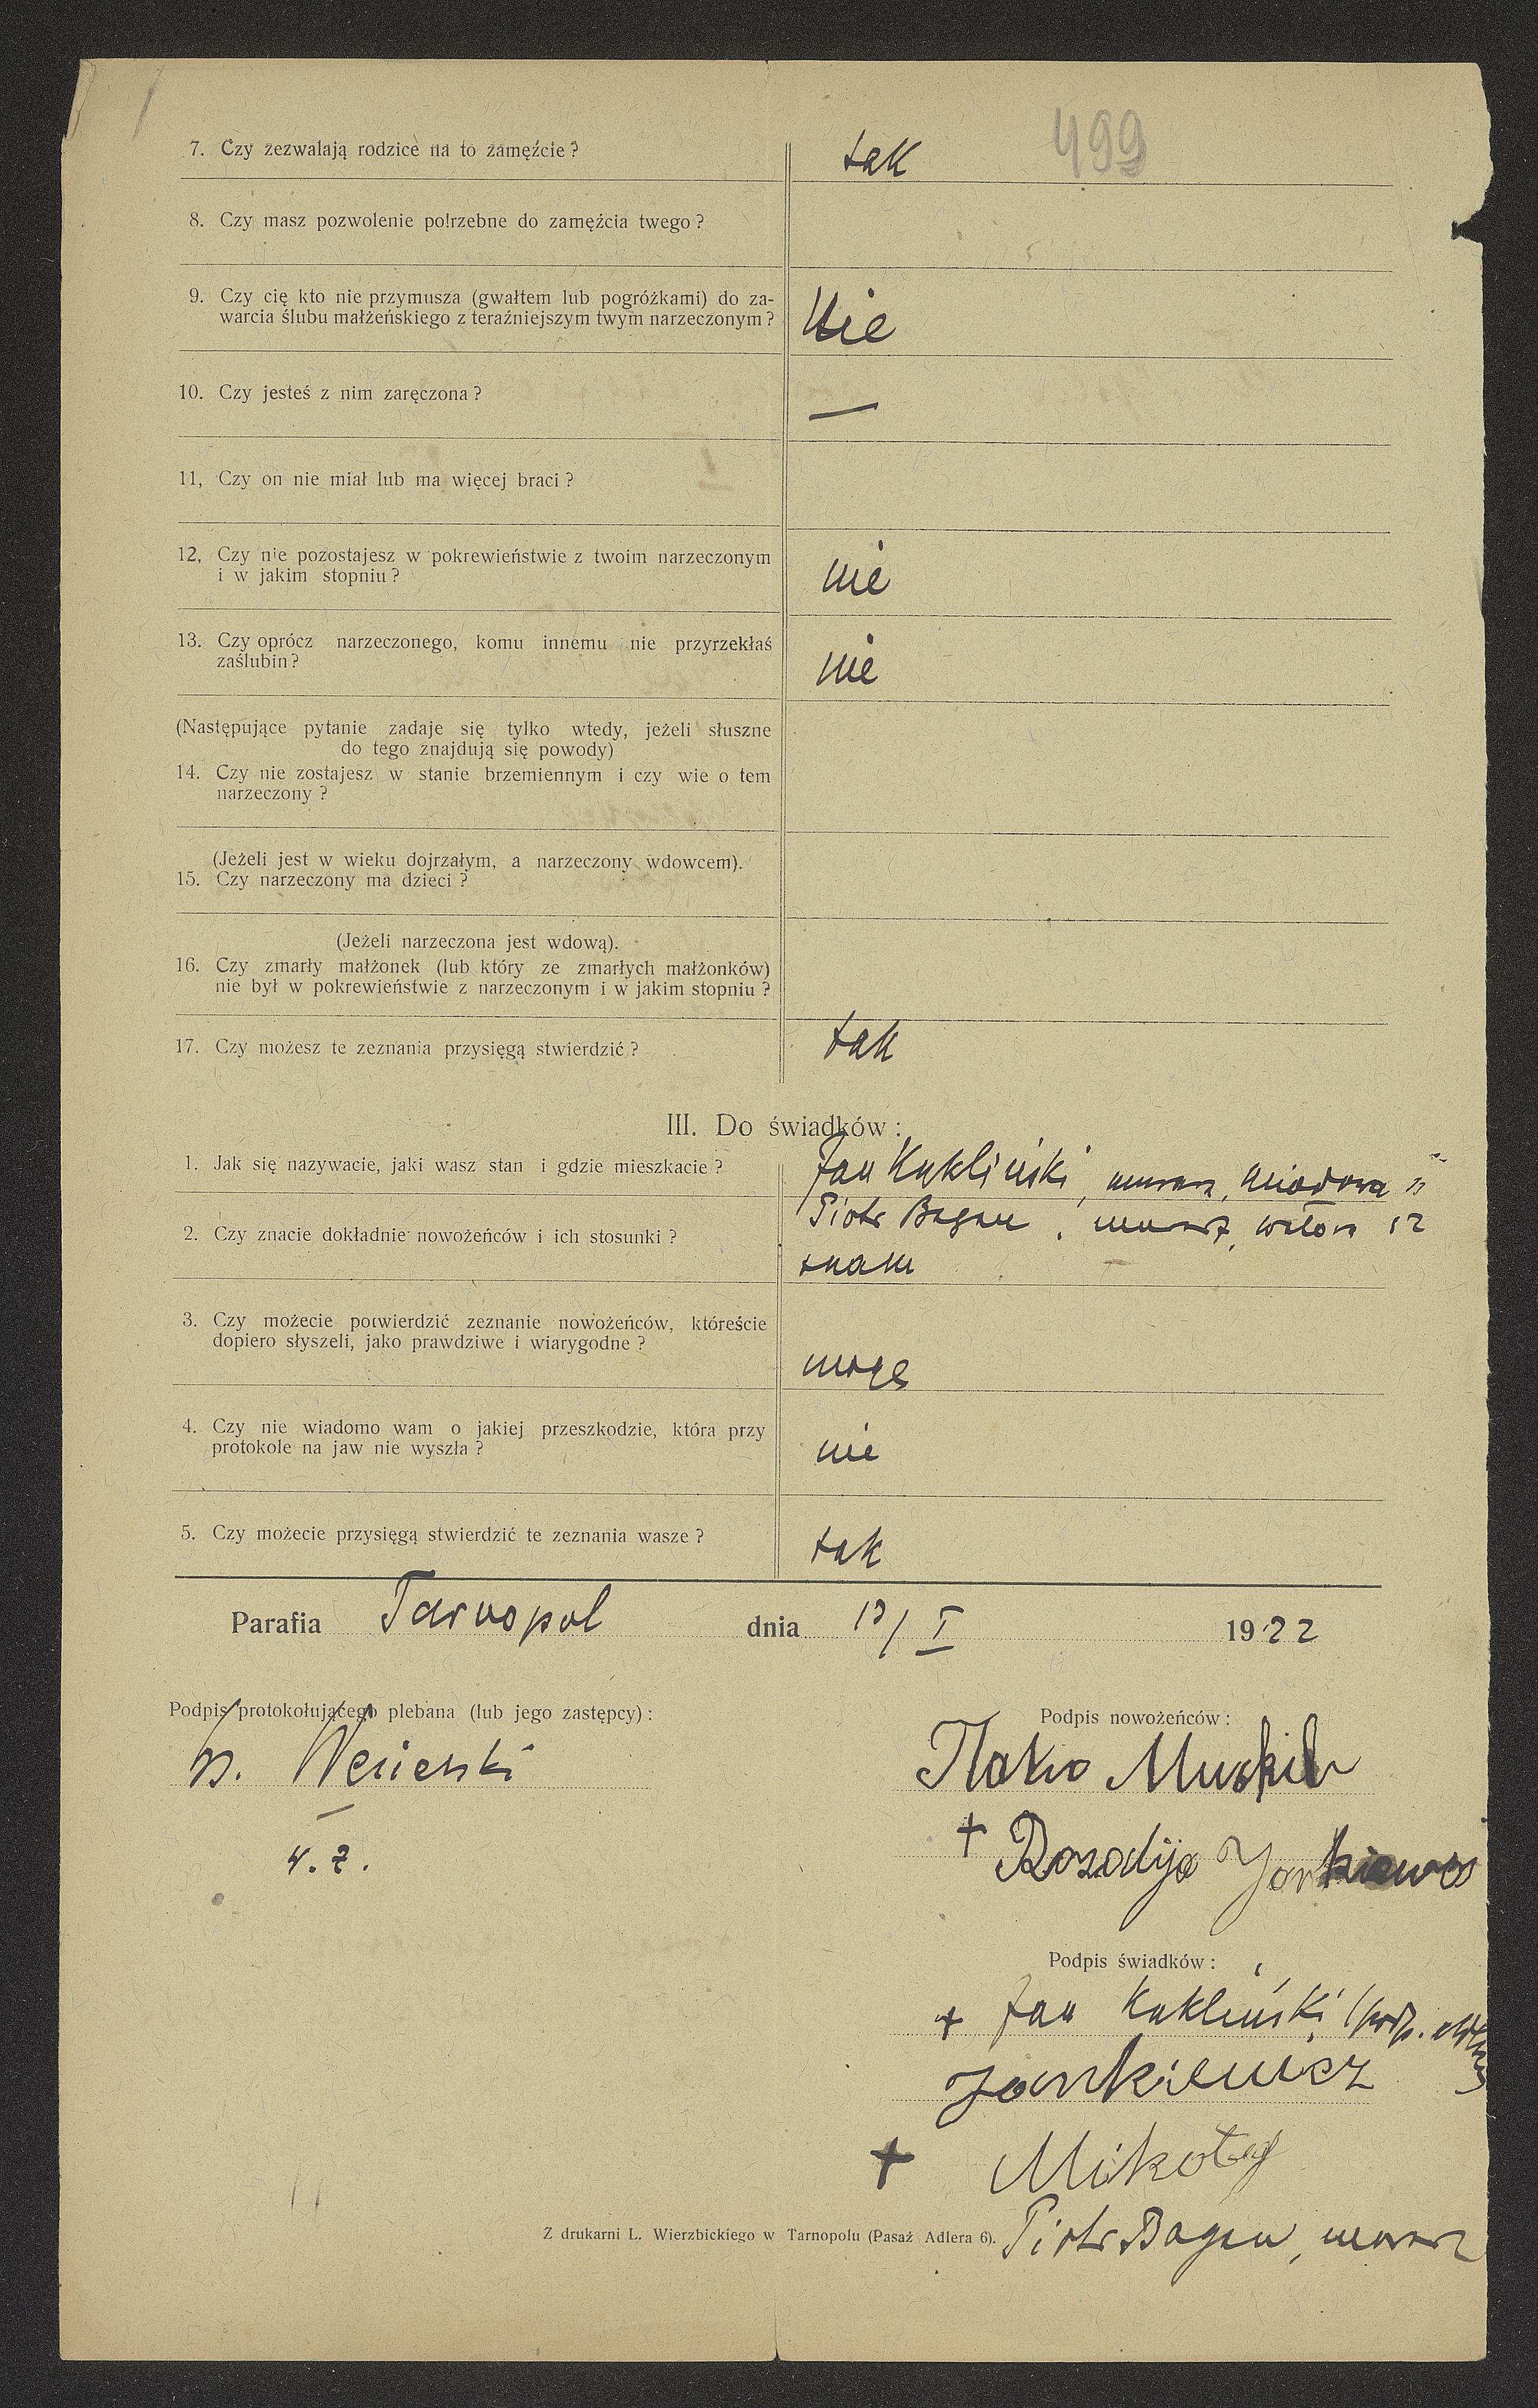 499
7. Czy zezwalają rodzice na to zamęźcie? tak
8. Czy masz pozwolenie potrzebne do zamęźcia twego?
9. Czy cię kto nie przymusza (gwałtem lub pogróżkami) do za-
warcia ślubu małżeńskiego z teraźniejszym twym narzeczonym? Nie
10. Czy jesteś z nim zaręczona? —
11, Czy on nie miał lub ma więcej braci?
12, Czy nie pozostajesz w pokrewieństwie z twoim narzeczonym
i w jakim stopniu? nie
13. Czy oprócz narzeczonego, komu innemu nie przyrzekłaś
zaślubin? nie
(Następujące pytanie zadaje się tylko wtedy, jeżeli słuszne
do tego znajdują się powody)
14. Czy nie zostajesz w stanie brzemiennym i czy wie o tem
narzeczony?
(Jeżeli jest w wieku dojrzałym, a narzeczony wdowcem).
15. Czy narzeczony ma dzieci?
(Jeżeli narzeczona jest wdową).
16. Czy zmarły małżonek (lub który ze zmarłych małżonków)
nie był w pokrewieństwie z narzeczonym i w jakim stopniu?
17. Czy możesz te zeznania przysięgą stwierdzić? tak
III. Do świadków:
1. Jak się nazywacie, jaki wasz stan i gdzie mieszkacie? Jan Kukliński, murarz, Miodowa
Piotr Bagan, murarz, 12
2. Czy znacie dokładnie nowożeńców i ich stosunki?
znam
3. Czy możecie potwierdzić zeznanie nowożeńców, któreście
dopiero słyszeli, jako prawdziwe i wiarygodne? mogę
4. Czy nie wiadomo wam o jakiej przeszkodzie, która przy
protokole na jaw nie wyszła? nie
5. Czy możecie przysięgą stwierdzić te zeznania wasze? tak
Parafia Tarnopol dnia 13/I 1922
Podpis protokołującego plebana (lub jego zastępcy):
Podpis nowożeńców:
+ Rozalija
Podpis świadków:
+ Jan Kukliński
Jankiewicz
+ Mikołaj
Piotr Bagan, murarz
Z drukarni L. Wierzbickiego w Tarnopolu (Pasaż Adlera 6).